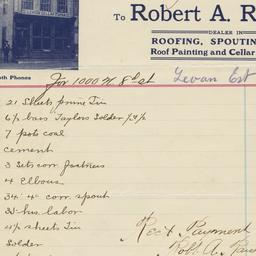 To Robert A. R
DEALER IN
ROOFING, SPOUTIN
Roof Painting and Cellar
oth Phones
For 1000 N 8th st
Levan Est
21 Sheets prime Tin
6½ bars Taylors Solder
7 pots coal
cement
3 Sets corr. fastners
4 Elbows
34' 4" corr. spout
35 hrs labor
4½ sheets Tin
Solder
Rec't Payment
Robt. A.